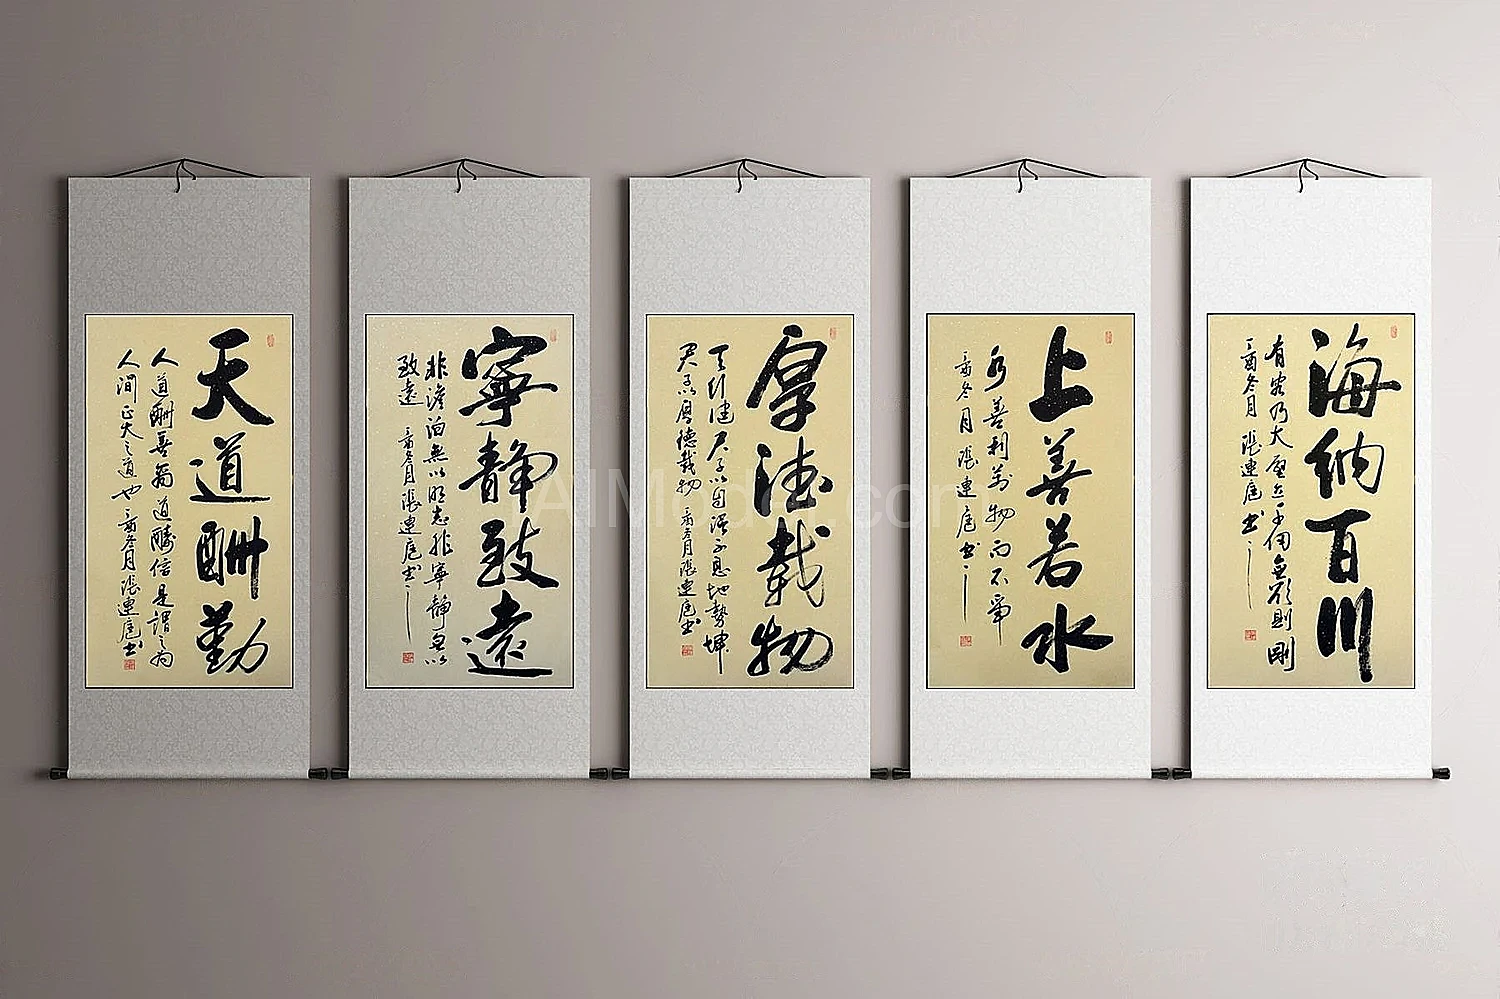 天道酬勤
人道酬善商道酬信是謂之為
人間正大之道也 丁酉冬月張連庭書
寧靜致遠
非澹泊無以明志非寧靜無以
致遠 丁酉冬月張連庭書
厚德載物
天行健君子以自强不息地勢坤
君子以厚德載物 丁酉冬月張連庭書
上善若水
水善利萬物而不爭
丁酉冬月張連庭書
海納百川
有容乃大壁立千仞無欲則剛
丁酉冬月張連庭書
AIModel.com